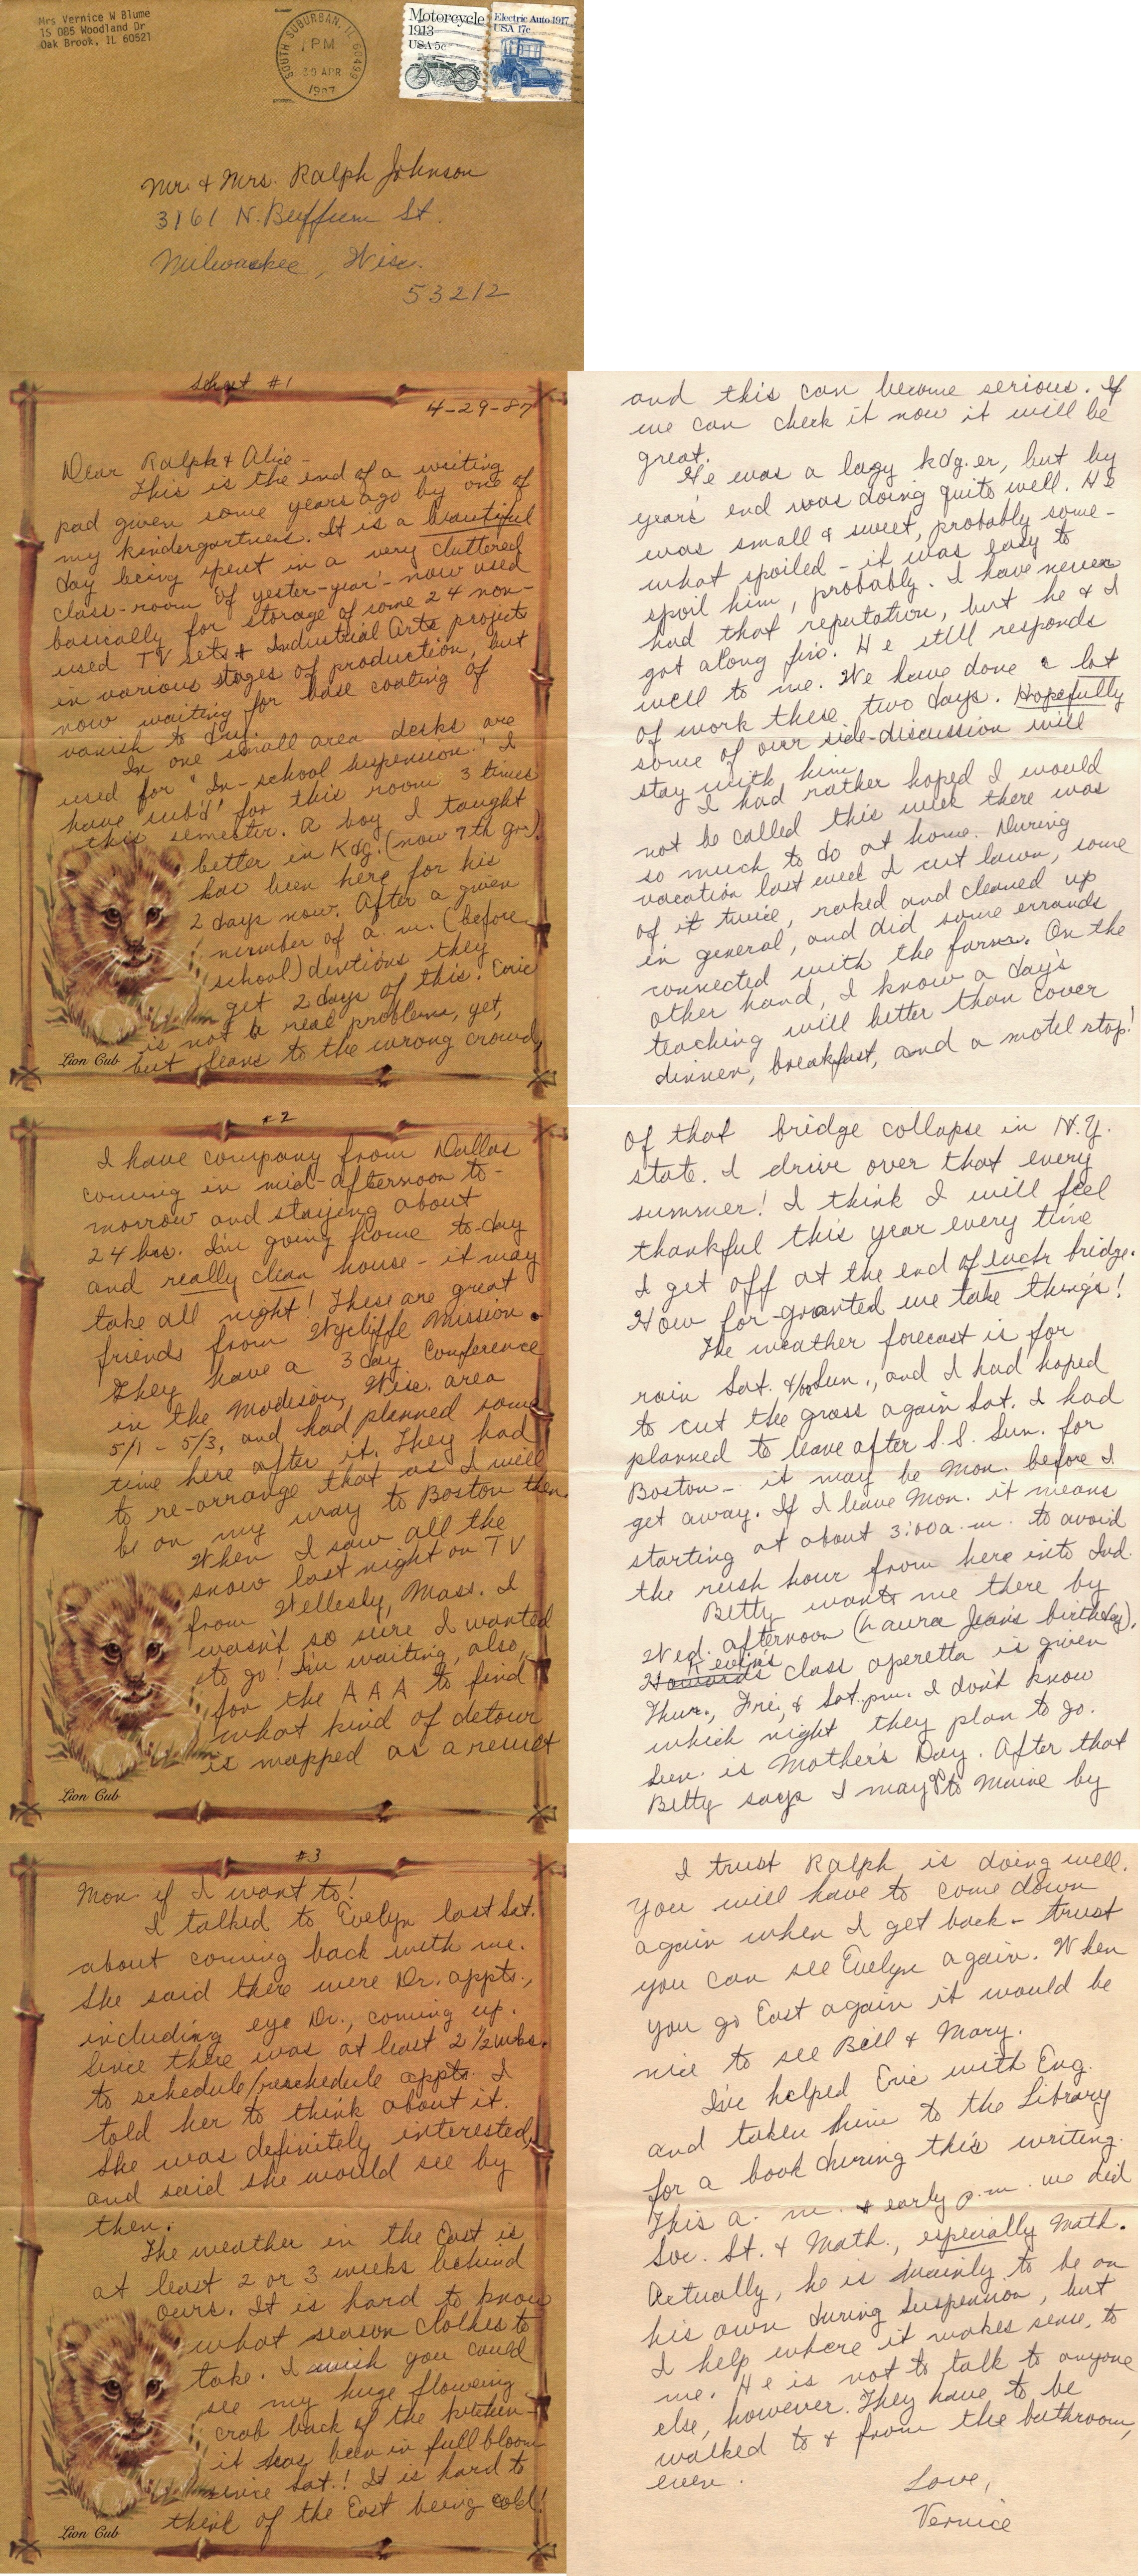 Mrs Vernice W Blume
15 085 Woodland Dr
Oak Brook, IL 60521
SOUTH SUBURBAN, IL 60499
PM
30 APR
1987
Motorcycle
1913
USA 5c
Electric Auto 1917
USA 17c
Mr. & Mrs. Ralph Johnson
3161 N. Buffum St.
Milwaukee, Wisc.
53212
Sheet #1
4-29-87
Dear Ralph & Alice -
This is the end of a writing
pad given some years ago by one of
my kindergartners. It is a beautiful
day being spent in a very cluttered
class-room of yester-year - now used
basically for storage of some 24 non-
used TV sets & Industrial Arts projects
in various stages of production, but
now waiting for base coating of
vanish to dry.
In one small area desks are
used for "In-school suspension." I
have "sub'd" for this room 3 times
this semester. A boy I taught
better in Kdg. (now 7th gr.)
has been here for his
2 days now. After a given
number of a.m. (before
school) dentions they
get 2 days of this. Eric
is not be real problems, yet,
but leans to the wrong crowd,
Lion Cub
and this can become serious. If
we can check it now it will be
great.
He was a lazy kdg.er, but by
years' end was doing quite well. He
was small & sweet, probably some-
what spoiled - it was easy to
spoil him, probably. I have never
had that reputation, but he & I
got along fine. He still responds
well to me. We have done a lot
of work these two days. Hopefully
some of our side-discussion will
stay with him.
I had rather hoped I would
not be called this week there was
so much to do at home. During
vacation last week I cut lawn, some
of it twice, raked and cleaned up
in general, and did some errands
connected with the farm. On the
other hand, I know a day's
teaching will better than cover
dinner, breakfast, and a motel stop!
#2
I have company from Dallas
coming in mid-afternoon to-
morrow and staying about
24 hrs. I'm going home to-day
and really clean house - it may
take all night! These are great
friends from Wycliffe Mission.
They have a 3 day Conference
in the Madison, Wisc. area
5/1 - 5/3, and had planned some
time here after it. They had
to re-arrange that as I will
be on my way to Boston then.
When I saw all the
snow last night on TV
from Wellesly, Mass. I
wasn't so sure I wanted
to go! I'm waiting, also,
for the AAA to find
what kind of detour
is mapped as a result
Lion Cub
of that bridge collapse in N.Y.
state. I drive over that every
summer! I think I will feel
thankful this year every time
I get off at the end of each bridge.
How for granted we take things!
The weather forecast is for
rain Sat. &/or Sun., and I had hoped
to cut the grass again Sat. I had
planned to leave after S.S. Sun. for
Boston - it may be Mon. before I
get away. If I leave Mon. it means
starting at about 3:00 a.m. to avoid
the rush hour from here into Ind.
Betty wants me there by
Wed. afternoon (Laura Jean's birthday).
Kevin's
Howard's class operetta is given
Thur., Fri., & Sat. p.m. I don't know
which night they plan to go.
Sun. is Mother's Day. After that
Betty says I may go to Maine by
#3
Mon. if I want to!
I talked to Evelyn last Sat.
about coming back with me.
She said there were Dr. appts.,
including eye Dr., coming up.
Since there was at least 2 1/2 wks.
to schedule/reschedule appts. I
told her to think about it.
She was definitely interested,
and said she would see by
then.
The weather in the East is
at least 2 or 3 weeks behind
ours. It is hard to know
what season clothes to
take. I wish you could
see my huge flowering
crab back of the kitchen -
it has been in full bloom
since Sat.! It is hard to
think of the East being cold!
Lion Cub
I trust Ralph is doing well.
You will have to come down
again when I get back - trust
you can see Evelyn again. When
you go East again it would be
nice to see Bill & Mary.
I've helped Eric with Eng.
and taken him to the Library
for a book during this writing.
This a.m. & early p.m. we did
Soc. St. & Math., especially Math.
Actually, he is mainly to be on
his own during Suspension, but
I help where it makes sense, to
me. He is not to talk to anyone
else, however. They have to be
walked to & from the bathroom,
even.
Love,
Vernice